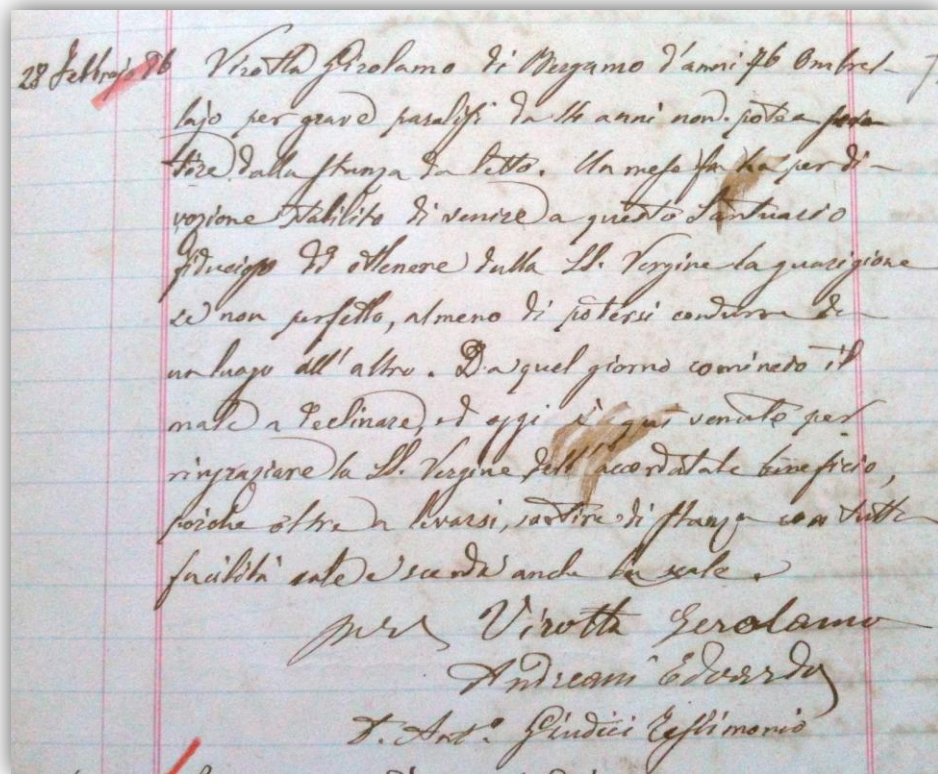 28 Febbrajo 76 Virotta Girolamo di Bergamo d'anni 76 Ombrel-
lajo per grave paralisi da 14 anni non potea sor
tire dalla stanza da letto. Un mese fa ha per di-
vozione stabilito di venire a questo Santuario
fiducioso di ottenere dalla SS. Vergine la guarigione
se non perfetta, almeno di potersi condurre da
un luogo all'altro. Da quel giorno cominciò il
male a declinare, ed oggi è qui venuto per
ringraziare la SS. Vergine dell'accordatale beneficio,
poichè oltre a levarsi, sortire di stanza con tutta
facilità sale e scende anche la scale.
per Virotta Gerolamo
Andreani Edvardo
D. Ant.º Giudici Testimonio